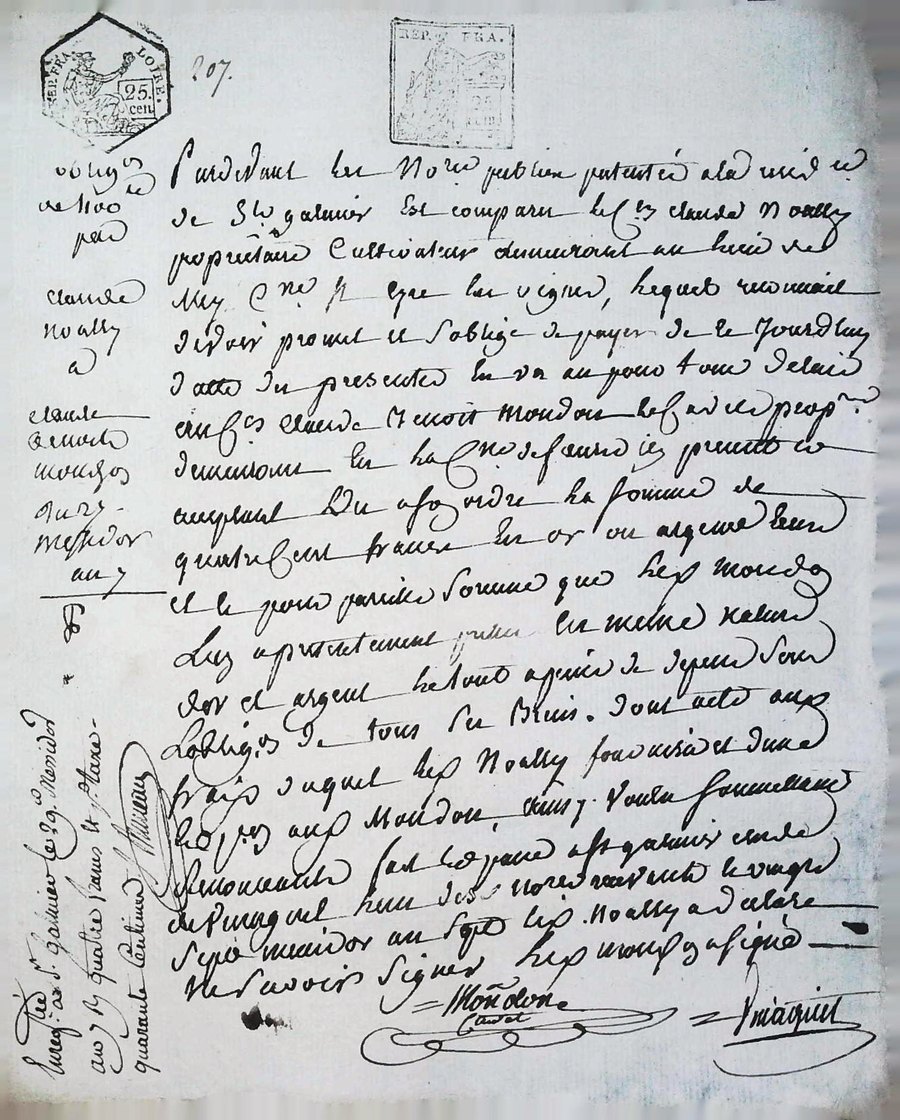 REP. FRA. LOIRE.
25. cen
207.
REP. FRA.
25 cen
oblig.on
de 400 #
par
claude
noally
a
claude
benoit
mondon
du 27
messidor
an 7
Pardevant les No.re public patenté
de St galmier Est comparu le C.en claude Noally
propriétaire Cultivateur demeurant au lieu de
C.ne St Cyre les vignes, lequel reconnait
devoir promet et s'oblige de payer de ce Jourdhuy
datte des presentes En un an pour tout delaid
au C.en claude Benoit mondon le Cadet prop.re
demeurant En la C.ne de feurs icy present et
acceptant ou a son ordre la somme de
quatre Cent francs En or ou argent
et ce pour pareille somme que led mondon
Luy a presentement En meme nature
dor et argent le tout a peine de depens sous
Lobligon de tous ses Biens. Dont acte aux
frais duquel led Noally fournira et d'une
aud Mondon, ainsy Voulu soumettant
renonceant fait et passé a St galmier etude
de Vinaguet Lun des Notres le vingt
Sept messidor an Sept led. Noally a declaré
ne savoir signer led mondon a signé
Mondon
Cadet
Vinaguet
Enreg. à St Galmier le 29 Messidor
an 7 R. quatre francs et plaxe
quarante Centimes